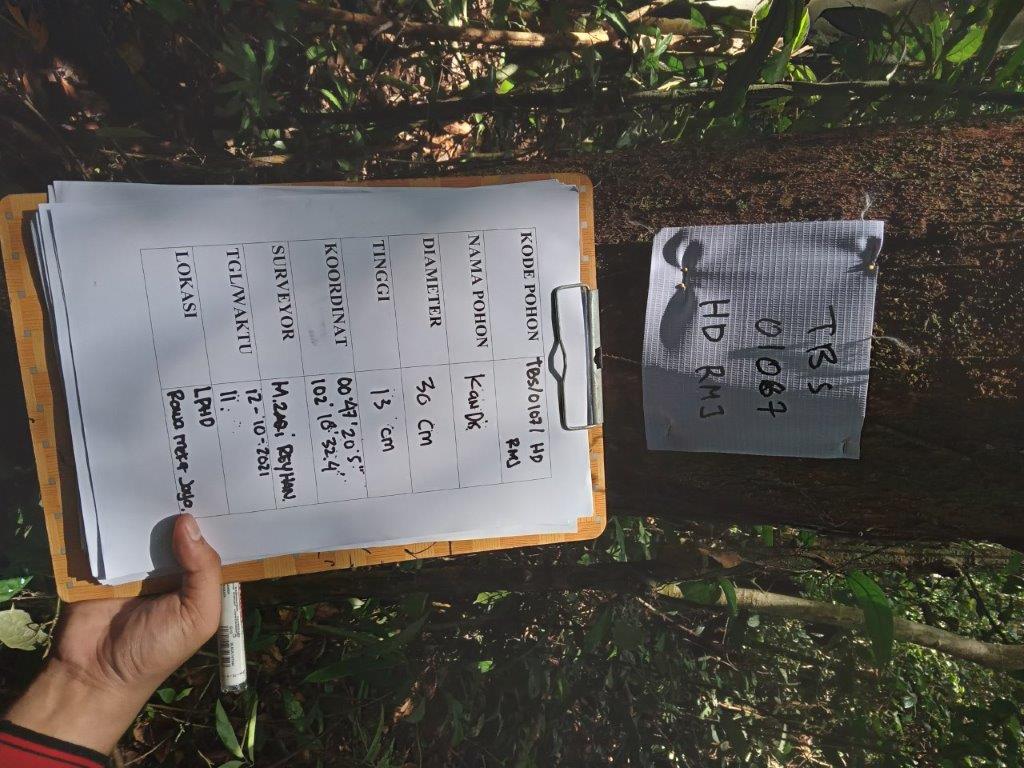 TBS
01067
HD RMJ
KODE POHON TBS/0107/ HD
RMJ
NAMA POHON KanDis
DIAMETER 30 cm
TINGGI 13 cm
KOORDINAT 00°47'20.5"
102°18'32.4"
SURVEYOR M.ZAQi REYHAN.
TGL/WAKTU 12-10-2021
11.
LOKASI LPHD
Rawa Mekar Jaya.